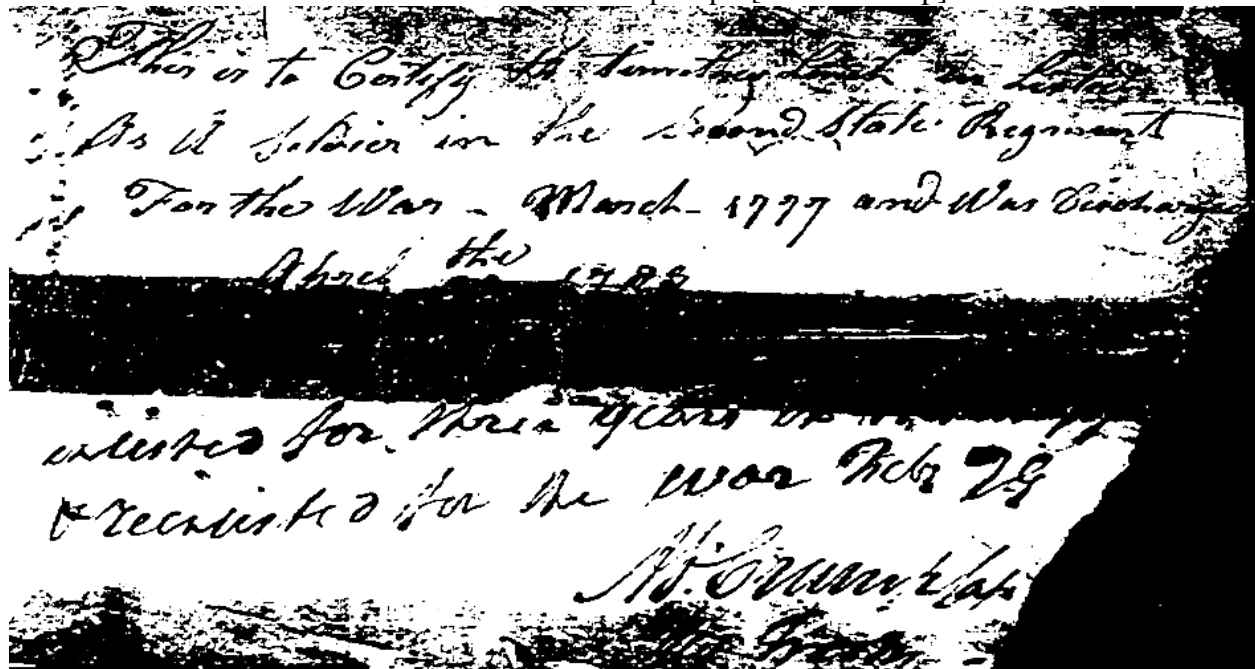 This is to Certify th timothy in listed
As A Soldier in the Second State Regment
For the War - March - 1777 and Was Discharg
Aprel the
enlisted for three years in
& reenlisted for the war Feby 79